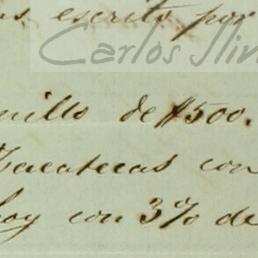 os escrito por
Carlos Slim
nillo de $500.
Zacatecas con
hoy con 3% de